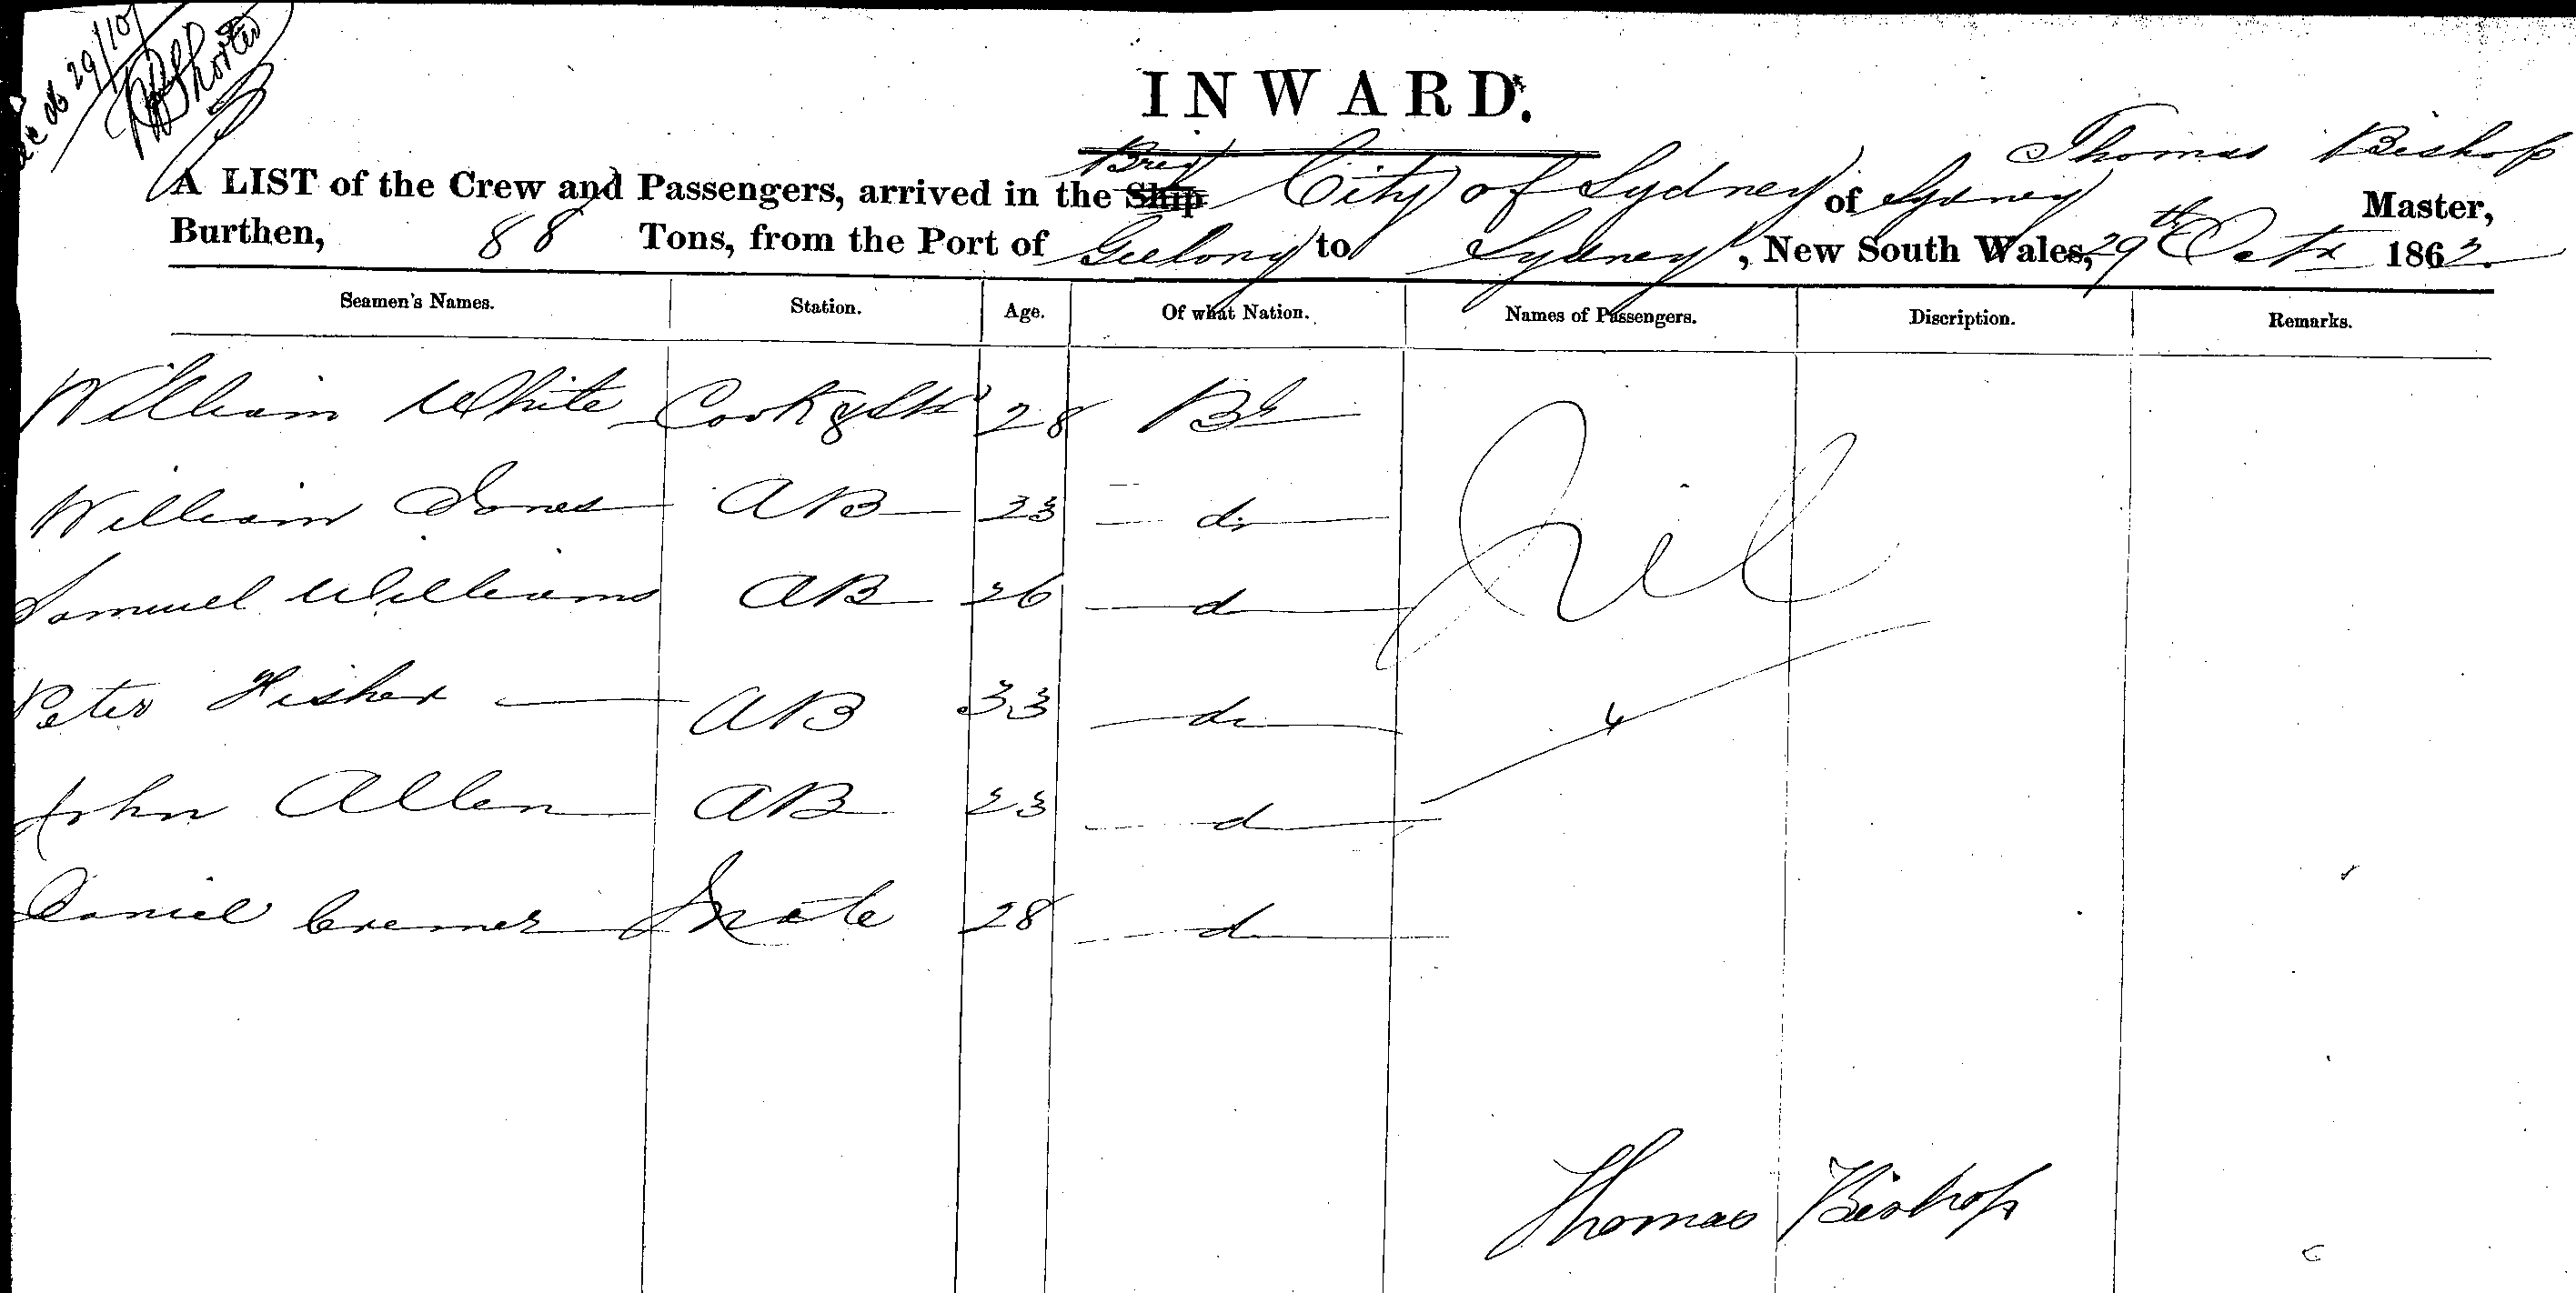 29/10
INWARD.
Brig Thomas Bishop
A LIST of the Crew and Passengers, arrived in the Ship City of Sydney of Sydney Master,
Burthen, 88 Tons, from the Port of Geelong to Sydney, New South Wales, 29th Octr 1862.
Seamen's Names. Station. Age. Of what Nation. Names of Passengers. Discription. Remarks.
William White Cook & St 28 Br Nil
William Jones AB 23 do
Samuel Williams AB 26 do
Peter Fisher AB 33 do
John Allen AB 23 do
Daniel Cremer Mate 28 do
Thomas Bishop